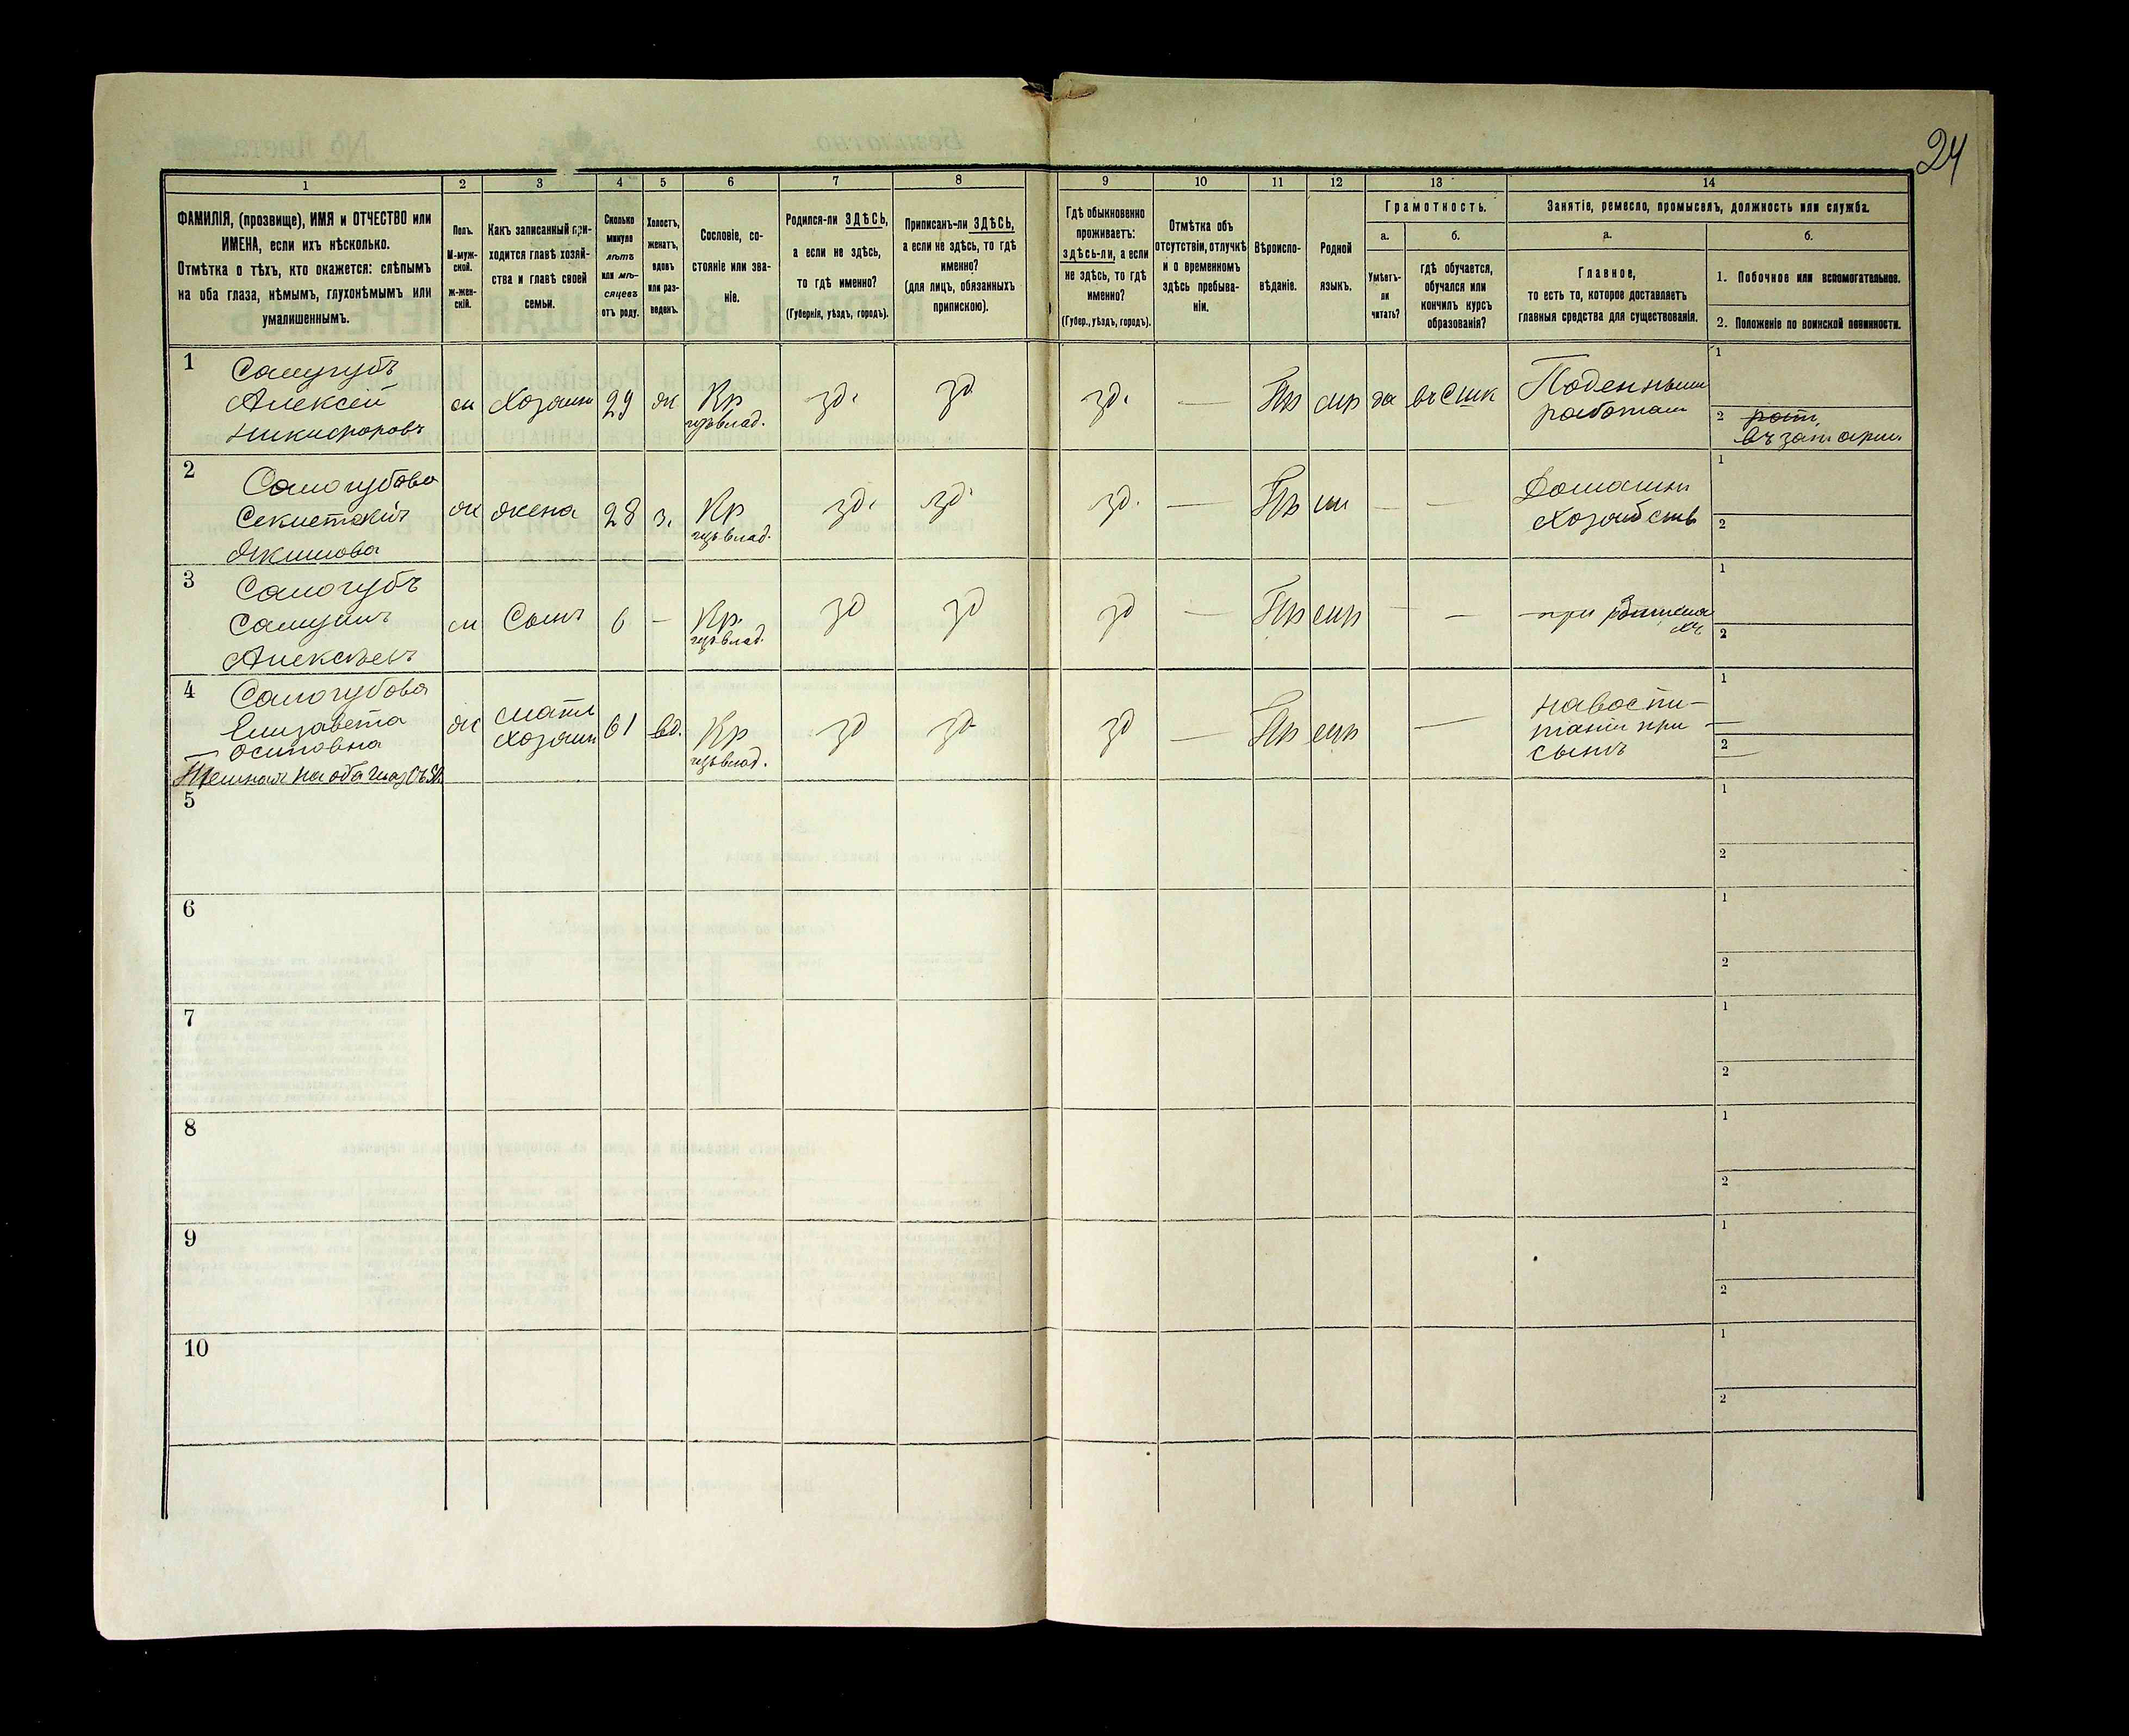 24
1 2 3 4 5 6 7 8 9 10 11 12 13 14
ФАМИЛІЯ, (прозвище), ИМЯ и ОТЧЕСТВО или
ИМЕНА, если ихъ нѣсколько.
Отмѣтка о тѣхъ, кто окажется: слѣпымъ
на оба глаза, нѣмымъ, глухонѣмымъ или
умалишеннымъ.
Полъ.
М-муж-
ской.
Ж-жен-
скій.
Какъ записанный при-
ходится главѣ хозяй-
ства и главѣ своей
семьи.
Сколько
минуло
лѣтъ
или мѣ-
сяцевъ
отъ роду.
Холостъ,
женатъ,
вдовъ
или раз-
веденъ.
Сословіе, со-
стояніе или зва-
ніе.
Родился-ли ЗДѢСЬ,
а если не здѣсь,
то гдѣ именно?
(Губернія, уѣздъ, городъ).
Приписанъ-ли ЗДѢСЬ,
а если не здѣсь, то гдѣ
именно?
(для лицъ, обязанныхъ
припискою).
Гдѣ обыкновенно
проживаетъ:
здѣсь-ли, а если
не здѣсь, то гдѣ
именно?
(Губер., уѣздъ, городъ).
Отмѣтка объ
отсутствіи, отлучкѣ
и о временномъ
здѣсь пребыва-
ніи.
Вѣроиспо-
вѣданіе.
Родной
языкъ.
Грамотность.
а.
Умѣетъ-
ли
читать?
б.
гдѣ обучается,
обучался или
кончилъ курсъ
образованія?
Занятіе, ремесло, промыселъ, должность или служба.
а.
Главное,
то есть то, которое доставляетъ
главныя средства для существованія.
б.
1. Побочное или вспомогательное.
2. Положеніе по воинской повинности.
1
Самугубъ
Алексей
Никифоровъ
м Хозяинъ 29 ж Кр
зд. зд зд. — Пр мр да
Поденныи
1
2
2
Самогубова
Акимова
ж жена 28 з. Кр
зд. зд. зд. — Пр — —
1
2
3
Самогубъ
Алексѣевъ
м Сынъ 6 — Кр.
зд зд зд — Пр мр — —
при
1
2
4
Самогубова
Елизавета
Осиповна
на оба глаз
ж мать
хозяин 61 вд. Кр
зд зд зд — Пр мр —
навоспи-
таніи при
сынѣ
1
2
5
1
2
6
1
2
7
1
2
8
1
2
9
1
2
10
1
2